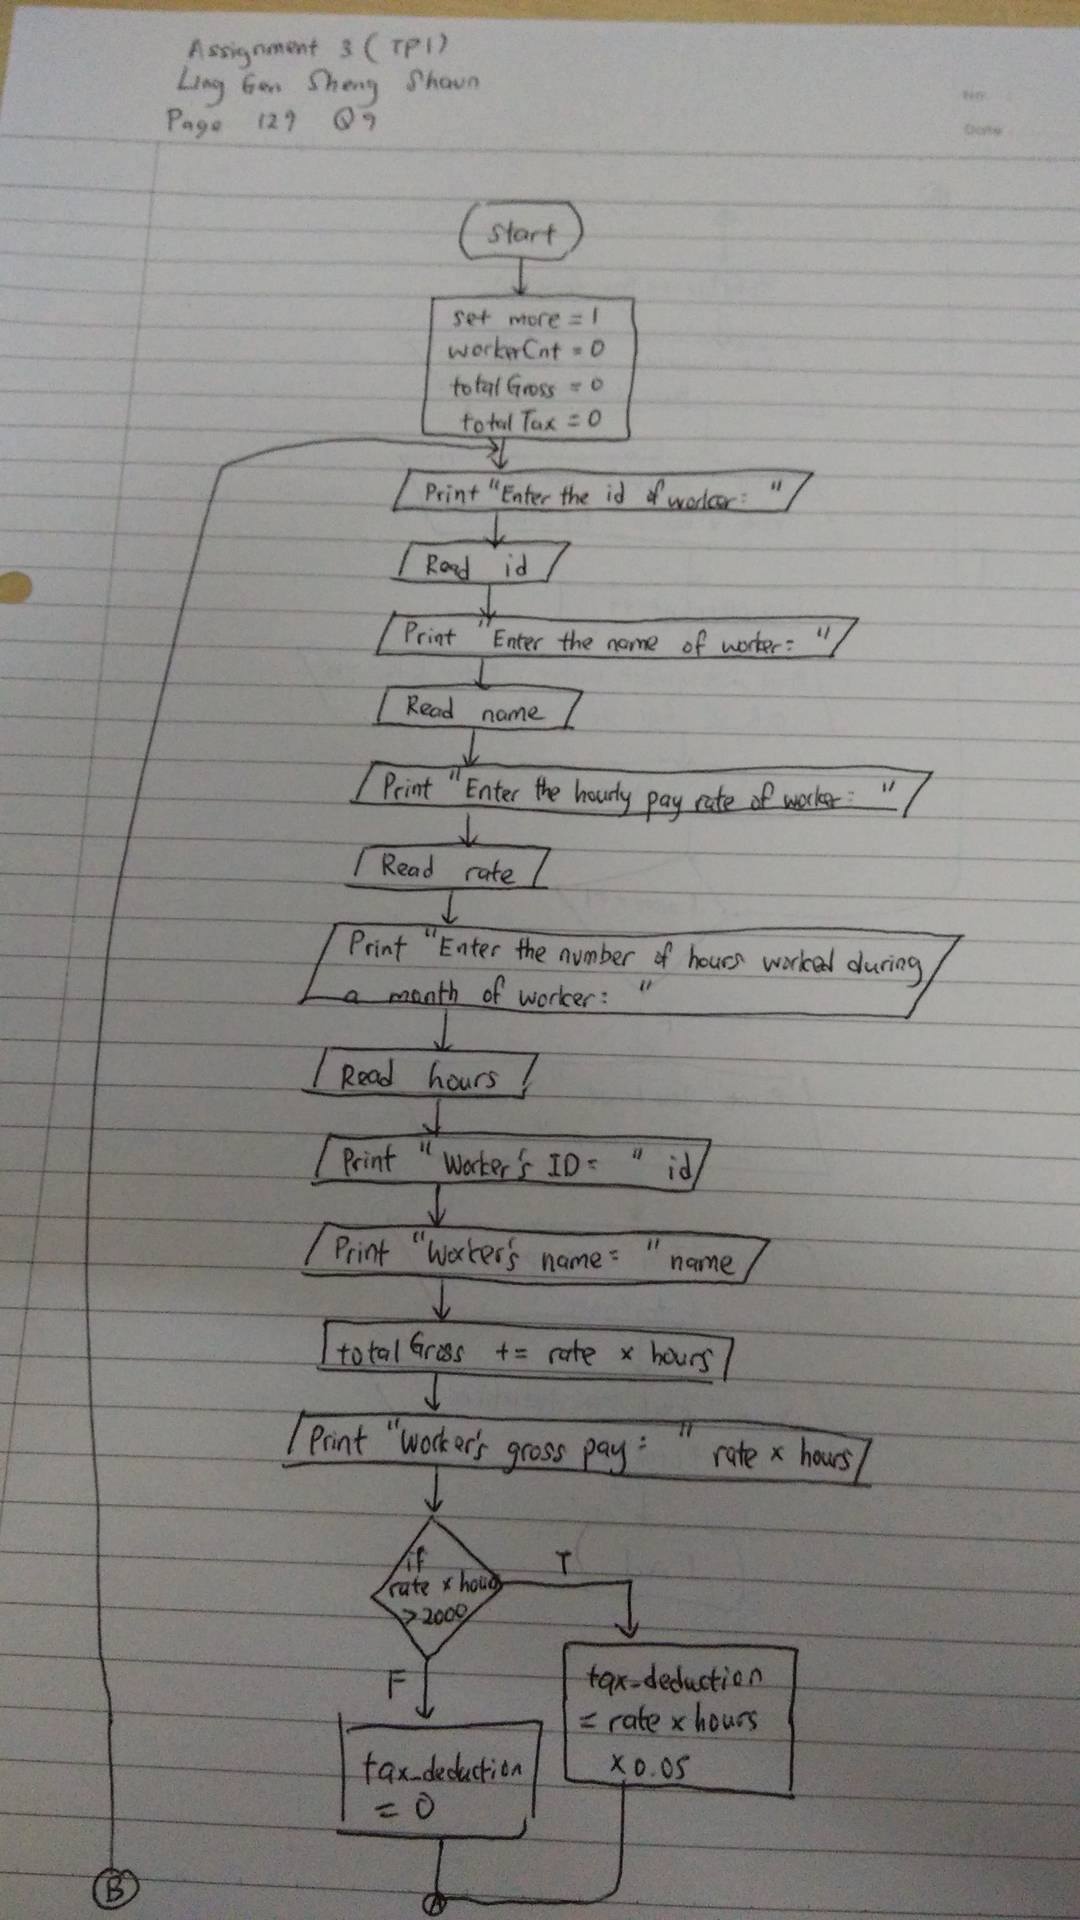 Assignment 3 (TP1)
Ling Gen Sheng Shaun
Page 129 Q9
No. :
Date :
Start
set more = 1
workerCnt = 0
totalGross = 0
totalTax = 0
Print "Enter the id of worker: "
Read id
Print "Enter the name of worker: "
Read name
Print "Enter the hourly pay rate of worker: "
Read rate
Print "Enter the number of hours worked during
a month of worker: "
Read hours
Print "Worker's ID: " id
Print "Worker's name: " name
totalGross += rate x hours
Print "Worker's gross pay: " rate x hours
if
rate x hours
>2000
T
F
tax_deduction
= rate x hours
x 0.05
tax_deduction
= 0
B
A